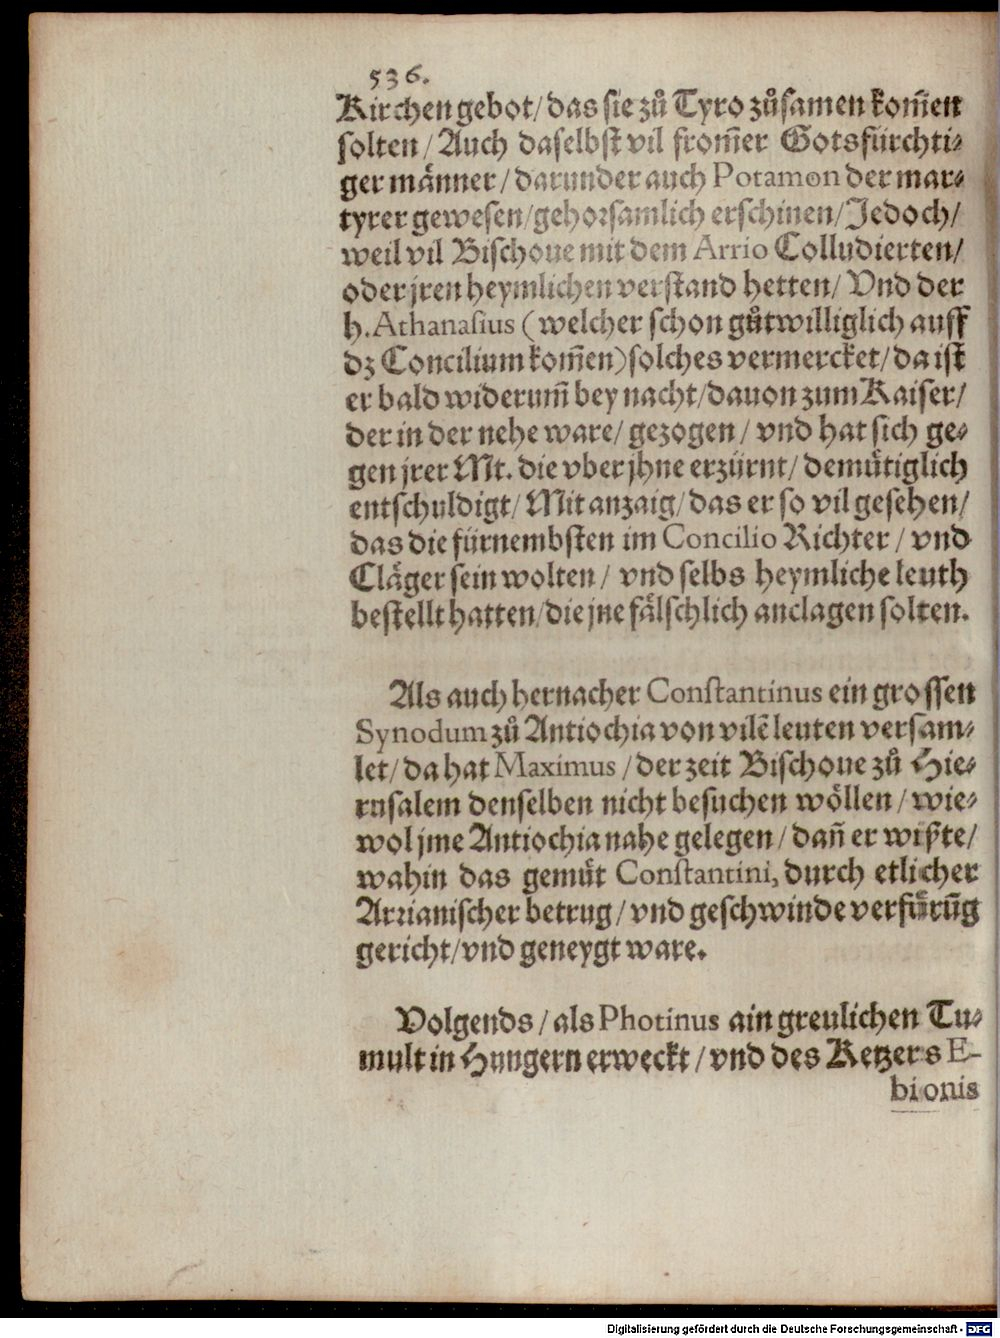 536.
Kirchen gebot/ das sie zů Tyro zůsamen kom̃en
solten / Auch daselbst vil from̃er Gotsfürchti⸗
ger männer / darunder auch Potamon der mar⸗
tyrer gewesen/ gehorsamlich erschinen/ Jedoch/
weil vil Bischoue mit dem Arrio Colludierten/
oder jren heymlichen verstand hetten/ Vnd der
h. Athanasius (welcher schon gůtwilliglich auff
dz Concilium kom̃en) solches vermercket/ da ist
er bald widerum̃ bey nacht/ dauon zum Kaiser/
der in der nehe ware/ gezogen / vnd hat sich ge⸗
gen jrer Mt. die vber jhne erzürnt/ demütiglich
entschuldigt/ Mit anzaig/ das er so vil gesehen/
das die fürnembsten im Concilio Richter / vnd
Cläger sein wolten / vnd selbs heymliche leuth
bestellt hatten/ die jne fälschlich anclagen solten.
Als auch hernacher Constantinus ein grossen
Synodum zů Antiochia von vilē leuten versam⸗
let/ da hat Maximus / der zeit Bischoue zů Hie⸗
rusalem denselben nicht besuchen wöllen / wie⸗
wol jme Antiochia nahe gelegen / dañ er wißte/
wahin das gemüt Constantini, durch etlicher
Arrianischer betrug / vnd geschwinde verfürũg
gericht/ vnd geneygt ware.
Volgends / als Photinus ain greulichen Tu⸗
mult in Hungern erweckt / vnd des Ketzers E-
bionis
Digitalisierung gefördert durch die Deutsche Forschungsgemeinschaft - DFG